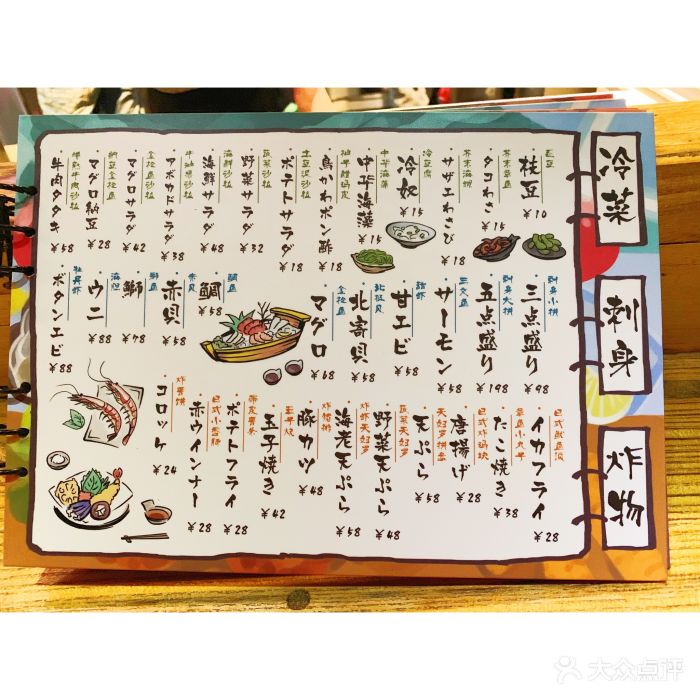 冷菜
毛豆
枝豆
¥10
芥末章鱼
タコわさ
¥15
芥末海螺
サザエわさび
¥18
冷豆腐
冷奴
¥15
中华海藻
中华海藻
¥15
柚子醋鸡皮
鳥かわポン酢
¥18
土豆泥沙拉
ポテトサラダ
¥18
蔬菜沙拉
野菜サラダ
¥32
海鲜沙拉
海鮮サラダ
¥48
牛油果沙拉
アボカドサラダ
¥38
金枪鱼沙拉
マグロサラダ
¥42
纳豆金枪鱼
マグロ納豆
¥28
牛肉タタキ
¥58
刺身
刺身小拼
三点盛り
¥98
刺身大拼
五点盛り
¥198
三文鱼
サーモン
¥58
甜虾
甘エビ
¥58
北极贝
北寄貝
¥58
金枪鱼
マグロ
¥68
鲷鱼
鯛
¥58
赤贝
赤貝
¥38
鰤鱼
鰤
¥78
海胆
ウニ
¥88
牡丹虾
ボタンエビ
¥88
炸物
日式鱿鱼须
イカフライ
¥28
章鱼小丸子
たこ焼き
¥38
日式炸鸡块
唐揚げ
¥28
天妇罗拼盘
天ぷら
¥58
蔬菜天妇罗
野菜天ぷら
¥48
炸虾天妇罗
海老天ぷら
¥58
炸猪排
豚カツ
¥48
玉子烧
玉子焼き
¥42
脆皮薯条
ポテトフライ
¥28
日式小香肠
赤ウインナー
¥28
炸薯饼
コロッケ
¥24
大众点评